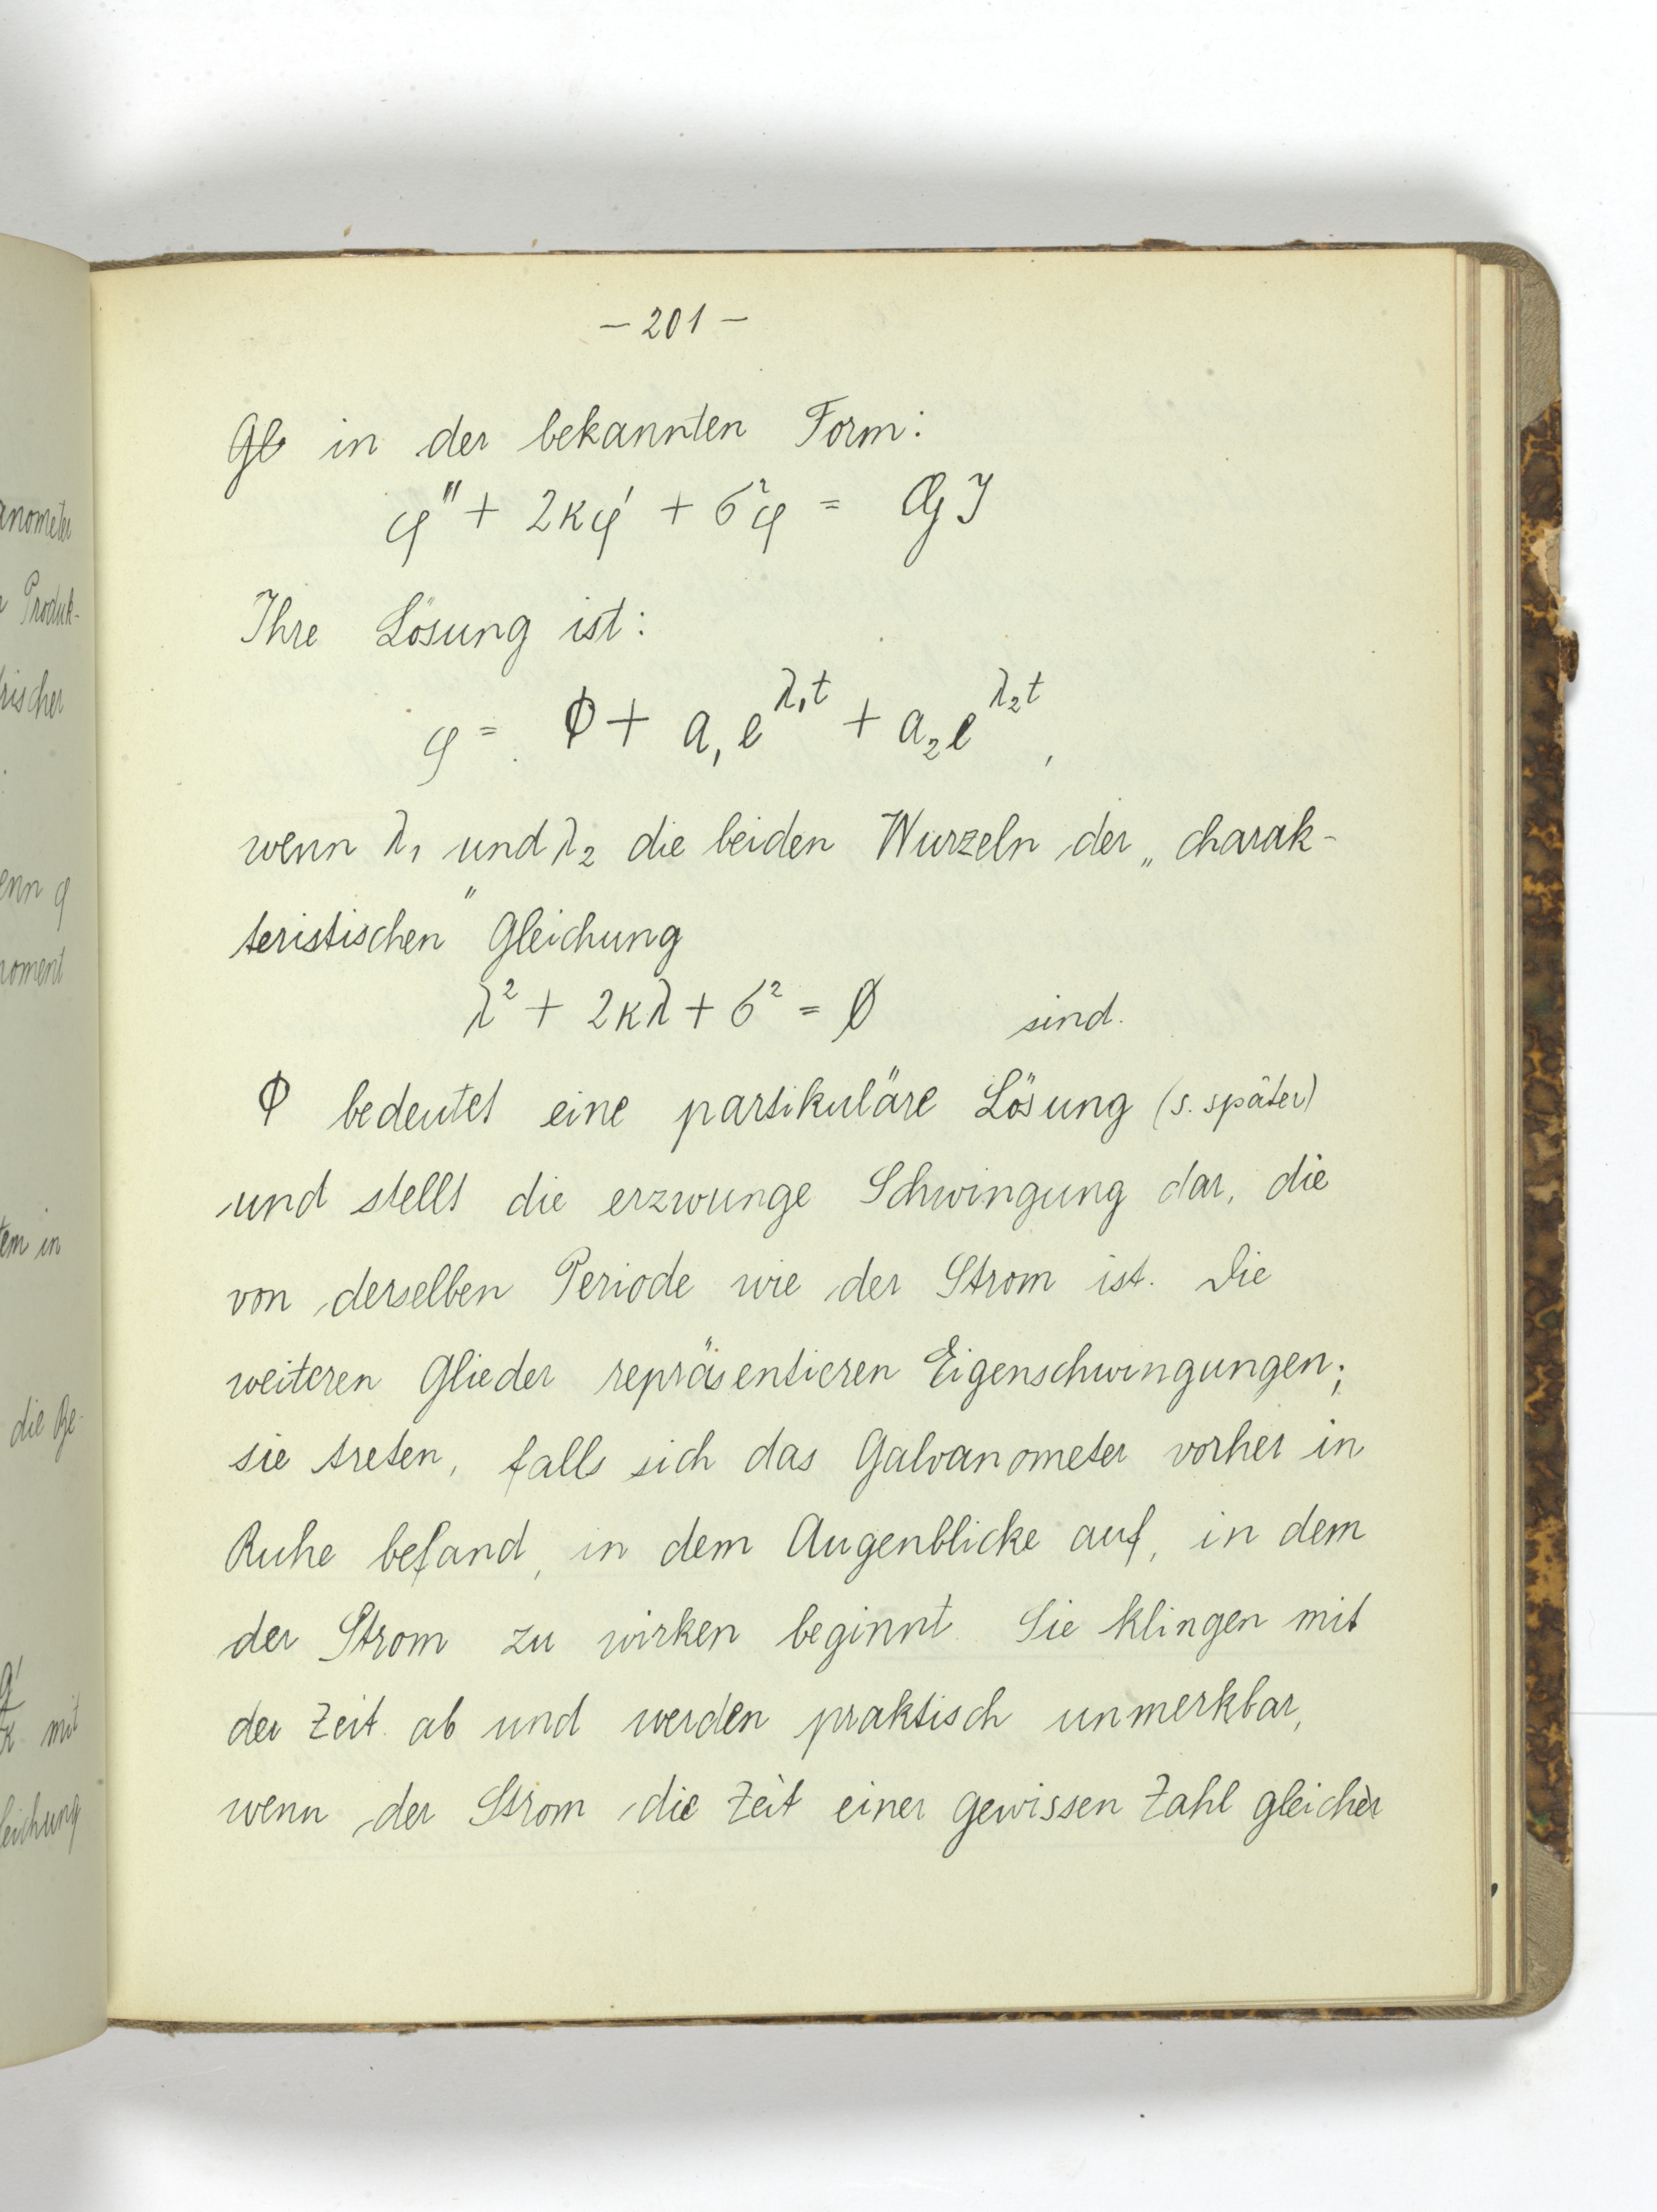 anometer
Produk-
rischer
enn φ
moment
tem in
die Be-
mit
leichung
- 201 -
Gl in der bekannten Form:
φ'' + 2κφ' + σ²φ = GJ
Ihre Lösung ist:
φ = Φ + a₁e^λ₁t + a₂e^λ₂t,
wenn λ₁ und λ₂ die beiden Wurzeln der „charak-
teristischen" Gleichung
λ² + 2κλ + σ² = 0 sind.
Φ bedeutet eine partikuläre Lösung (s. später)
und stellt die erzwunge Schwingung dar, die
von derselben Periode wie der Strom ist. Die
weiteren Glieder repräsentieren Eigenschwingungen;
sie treten, falls sich das Galvanometer vorher in
Ruhe befand, in dem Augenblicke auf, in dem
der Strom zu wirken beginnt. Sie klingen mit
der Zeit ab und werden praktisch unmerkbar,
wenn der Strom die Zeit einer gewissen Zahl gleicher